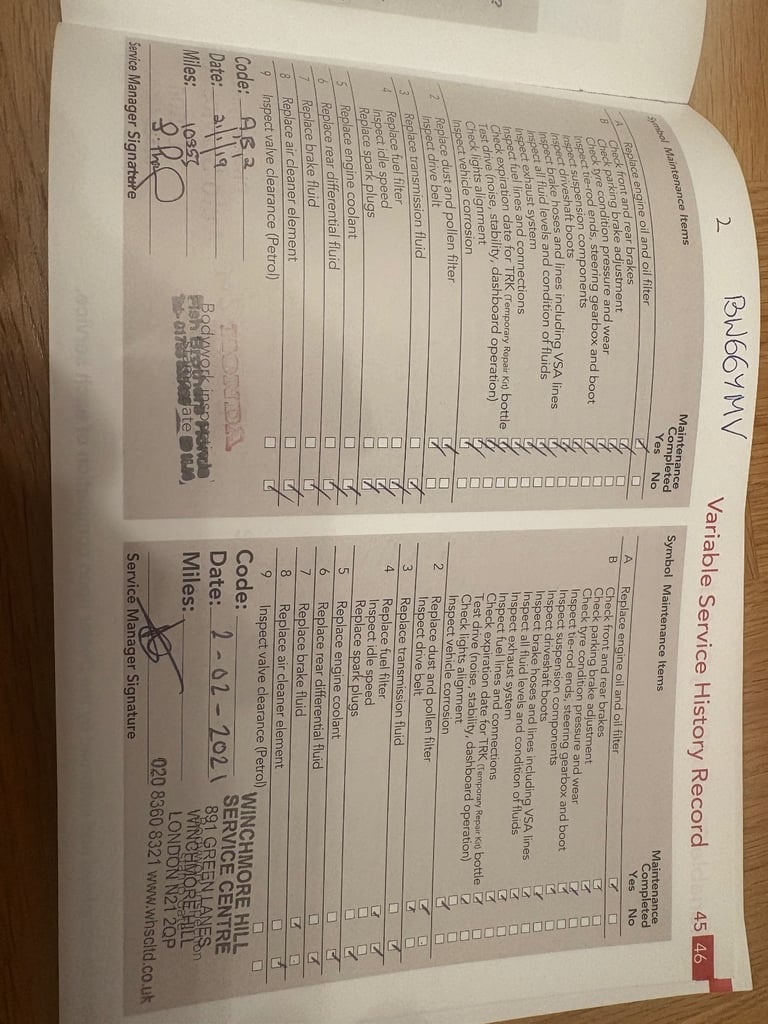 ?
2 BW66YMV
Variable Service History Record 45 46
Symbol Maintenance Items
Maintenance Completed
Yes No
A Replace engine oil and oil filter
B Check front and rear brakes
Check parking brake adjustment
Check tyre condition pressure and wear
Inspect tie-rod ends, steering gearbox and boot
Inspect suspension components
Inspect driveshaft boots
Inspect brake hoses and lines including VSA lines
Inspect all fluid levels and condition of fluids
Inspect exhaust system
Inspect fuel lines and connections
Check expiration date for TRK (Temporary Repair Kit) bottle
Test drive (noise, stability, dashboard operation)
Check lights alignment
Inspect vehicle corrosion
2 Replace dust and pollen filter
Inspect drive belt
3 Replace transmission fluid
4 Replace fuel filter
Inspect idle speed
Replace spark plugs
5 Replace engine coolant
6 Replace rear differential fluid
7 Replace brake fluid
8 Replace air cleaner element
9 Inspect valve clearance (Petrol)
Code: AB2
HONDA
Date: 21/1/19
Bodywork inspection
Miles: 10353
Service Manager Signature
Symbol Maintenance Items
Maintenance Completed
Yes No
A Replace engine oil and oil filter
B Check front and rear brakes
Check parking brake adjustment
Check tyre condition pressure and wear
Inspect tie-rod ends, steering gearbox and boot
Inspect suspension components
Inspect driveshaft boots
Inspect brake hoses and lines including VSA lines
Inspect all fluid levels and condition of fluids
Inspect exhaust system
Inspect fuel lines and connections
Check expiration date for TRK (Temporary Repair Kit) bottle
Test drive (noise, stability, dashboard operation)
Check lights alignment
Inspect vehicle corrosion
2 Replace dust and pollen filter
Inspect drive belt
3 Replace transmission fluid
4 Replace fuel filter
Inspect idle speed
Replace spark plugs
5 Replace engine coolant
6 Replace rear differential fluid
7 Replace brake fluid
8 Replace air cleaner element
9 Inspect valve clearance (Petrol)
Code:
WINCHMORE HILL
SERVICE CENTRE
Date: 2-02-2021
891 GREEN LANES
Miles:
WINCHMORE HILL
LONDON N21 2QP
020 8360 8321 www.whscltd.co.uk
Service Manager Signature